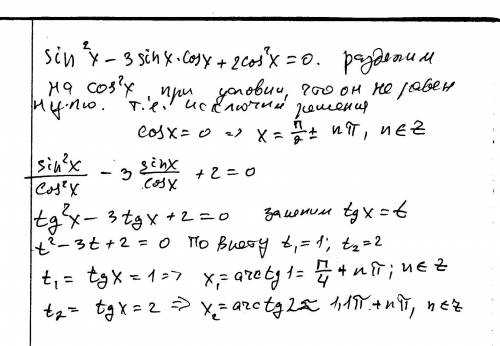 sin²x – 3 sinx·cosx + 2cos²x = 0. разделим
на cos²x, при условии, что он не равен
нулю. т.е. исключим решения
cosx = 0 => x = π/2 ± nπ, n∈Z
sin²x/cos²x – 3 sinx/cosx + 2 = 0
tg²x – 3tgx + 2 = 0 заменим tgx = t
t² – 3t + 2 = 0 По виету t₁ = 1; t₂ = 2
t₁ = tgx = 1 => x₁ = arctg1 = π/4 + nπ; n∈Z
t₂ = tgx = 2 => x₂ = arctg2 ≈ 1,1π + nπ, n∈Z